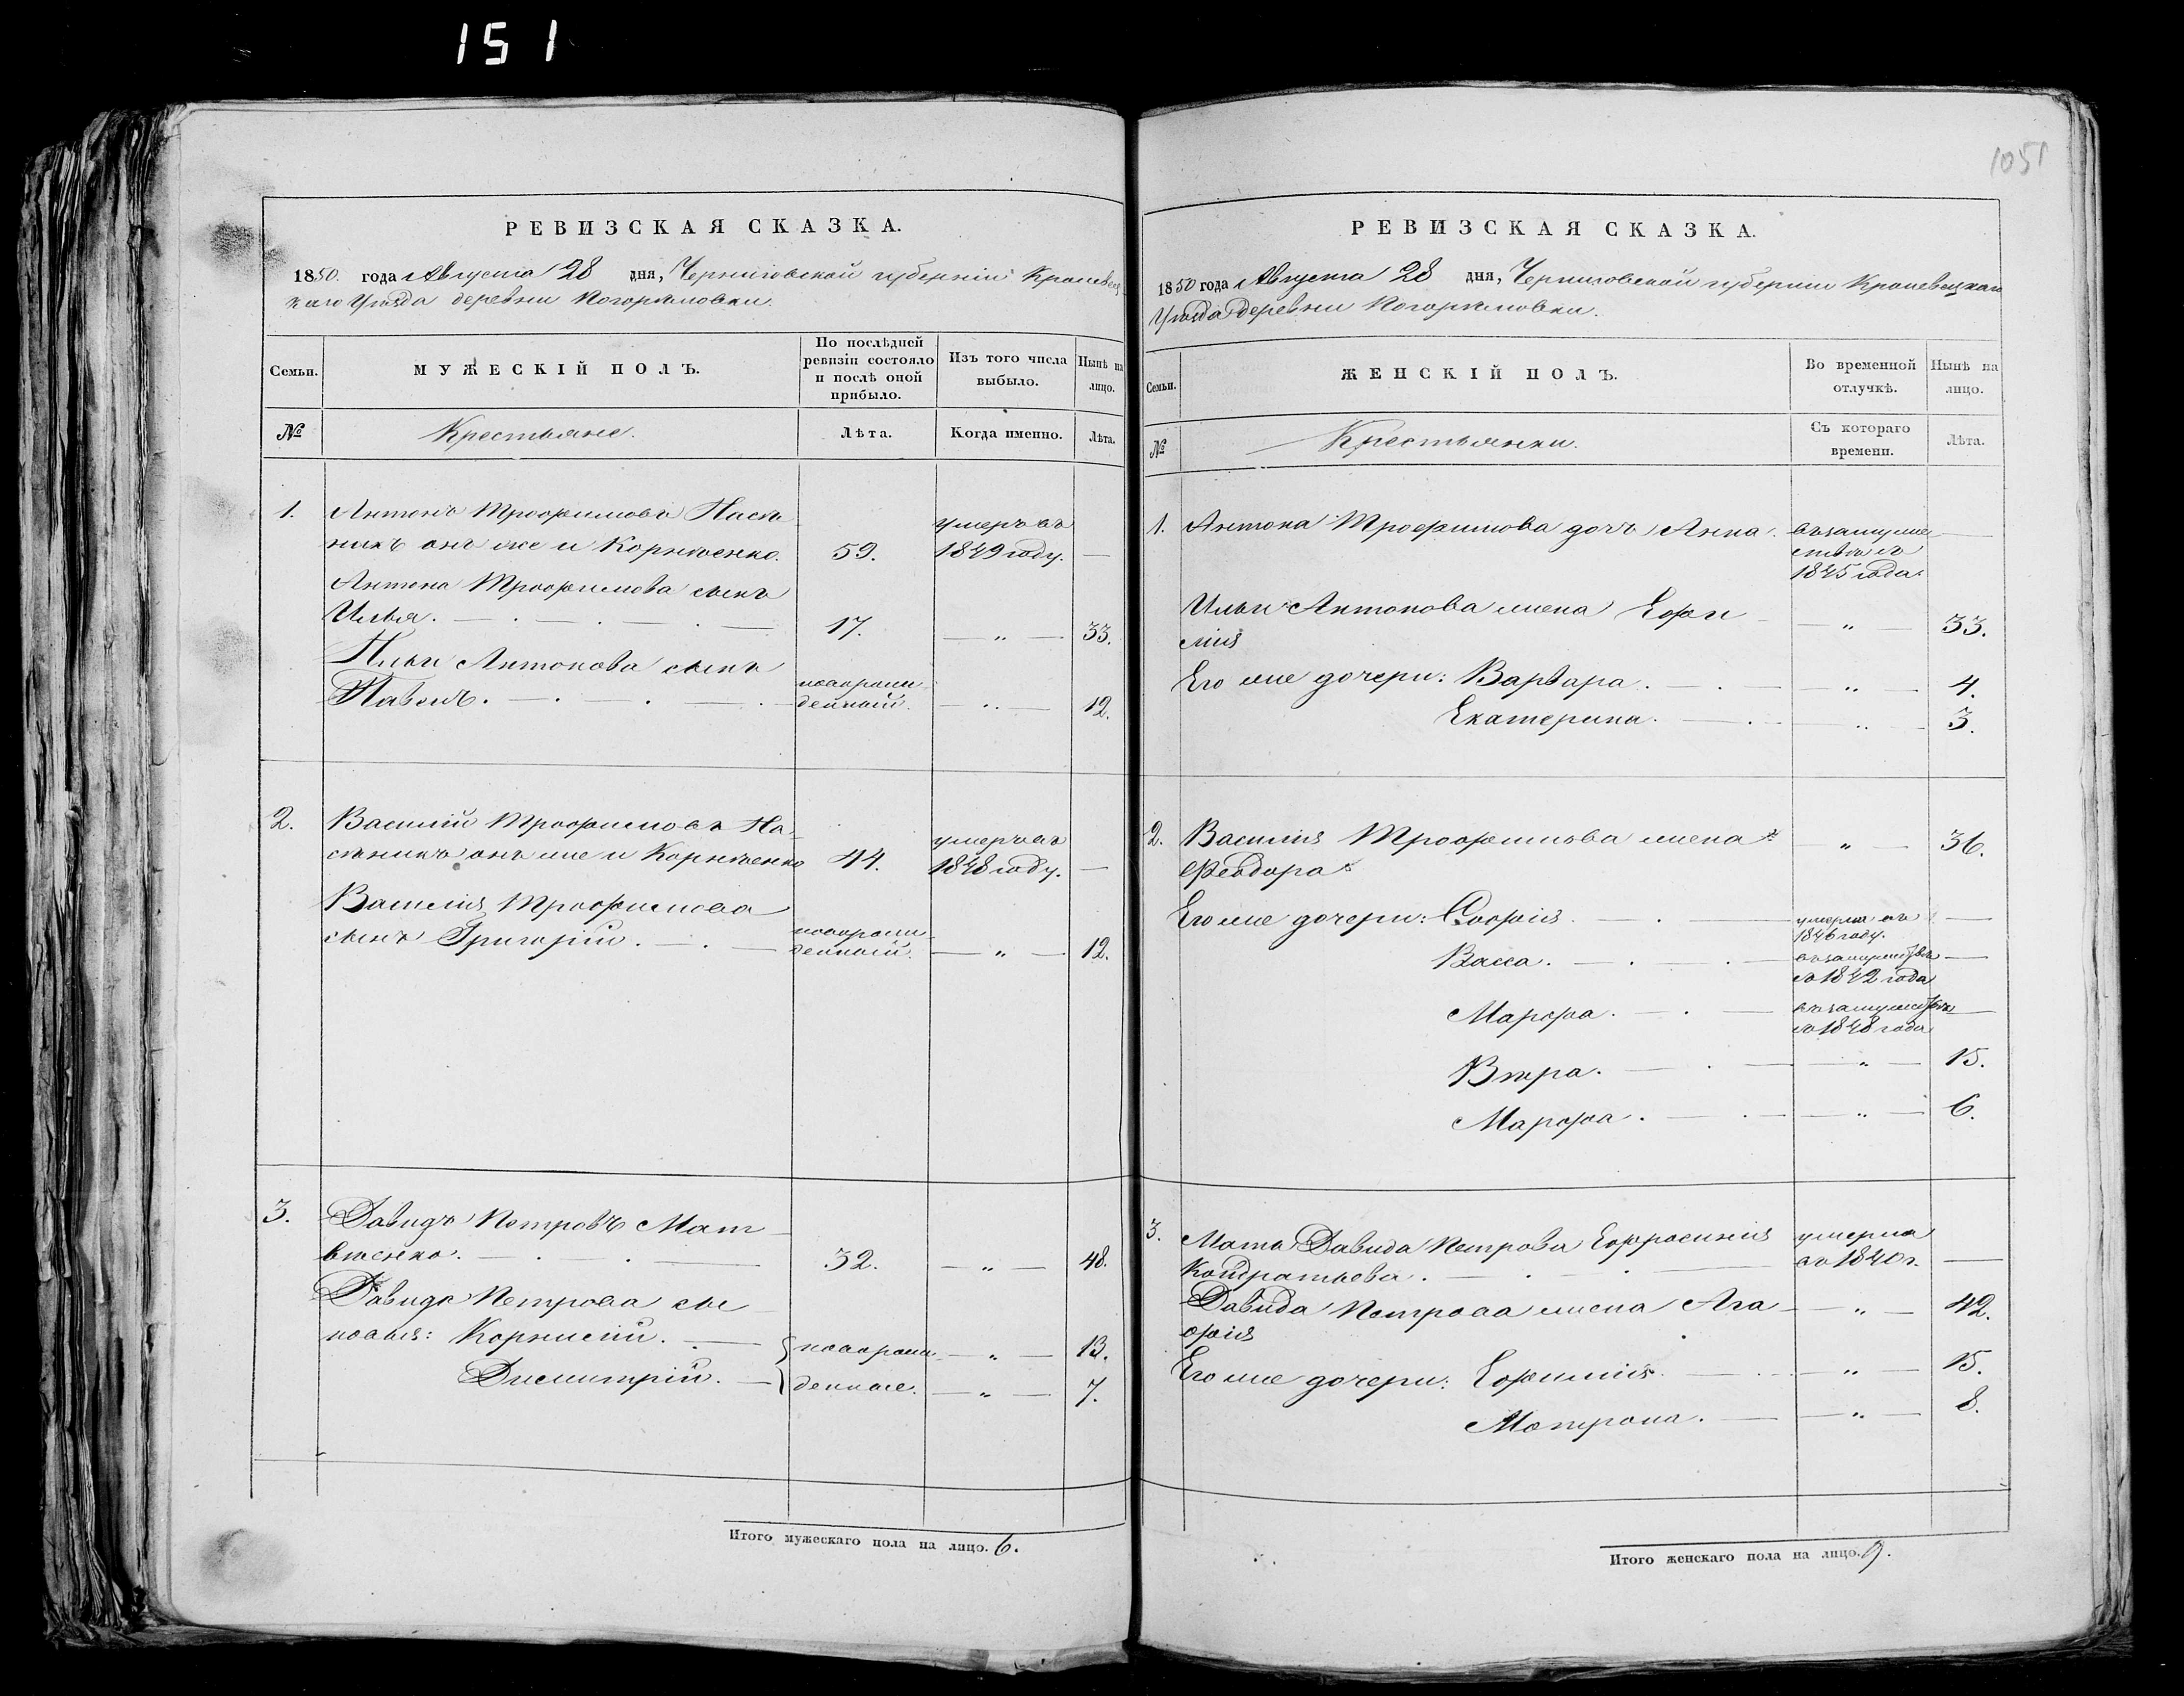 151
РЕВИЗСКАЯ СКАЗКА.
1850. года Августа 28 дня, Черниговской губерніи Кролевец-
каго Уѣзда деревни Погорѣловки.
Семьи.
МУЖЕСКІЙ ПОЛЪ.
По послѣдней
ревизіи состояло
и послѣ оной
прибыло.
Изъ того числа
выбыло.
Нынѣ на
лицо.
№
Крестьяне.
Лѣта.
Когда именно.
Лѣта.
1. Антонъ Трофимовъ Пасѣ- умеръ въ
никъ онъ же и Корнѣенко. 59. 1849 году. —
Антона Трофимова сынъ
Илья. — . — . — . — 17. — „ — 33.
Ильи Антонова сынъ
новорож-
Павелъ. — . — . — . — денный. — „ — 12.
2. Василій Трофимовъ Па- умеръ въ
сѣникъ онъ же и Корнѣенко 44. 1848 году. —
Василія Трофимова
новорож-
сынъ Григорій. — . — денный. — „ — 12.
3. Давидъ Петровъ Мат-
вѣенко. — . — . — 32. — „ — 48.
Давида Петрова сы-
новья: Корнилій. — . — новорож- — „ — 13.
Димитрій. — денные. — „ — 7.
Итого мужескаго пола на лицо. 6.
1051
РЕВИЗСКАЯ СКАЗКА.
1850 года Августа 28 дня, Черниговской губерніи Кролевецкаго
Уѣзда деревни Погорѣловки.
Семьи.
ЖЕНСКІЙ ПОЛЪ.
Во временной
отлучкѣ.
Нынѣ на
лицо.
№
Крестьянки.
Съ котораго
времени.
Лѣта.
1. Антона Трофимова дочь Анна. въ замуже- —
ствѣ съ
1845 года.
Ильи Антонова жена Ефи- — „ — 33.
мія
Его же дочери: Варвара. — . — — „ — 4.
Екатерина. — . — — „ — 3.
2. Василія Трофимова жена — „ — 36.
Феодора
Его же дочери: Софія. — . — умерла въ —
1846 году.
Васса. — . — . — въ замужствѣ —
съ 1842 года
Марфа. — . — . — въ замужствѣ —
съ 1848 года
Вѣра. — . — — „ — 15.
Марфа. — . — — „ — 6.
3. Мать Давида Петрова Ефросинія умерла
Кондратьева. — . — . — въ 1840 г. —
Давида Петрова жена Ага- — „ — 42.
фія
Его же дочери: Ефимія. — . — — „ — 15.
Мотрона. — — „ — 8.
Итого женскаго пола на лицо. 9.